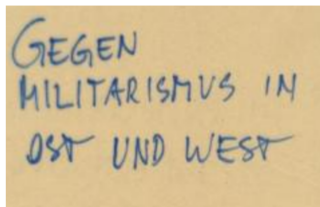 GEGEN
MILITARISMUS IN
OST UND WEST